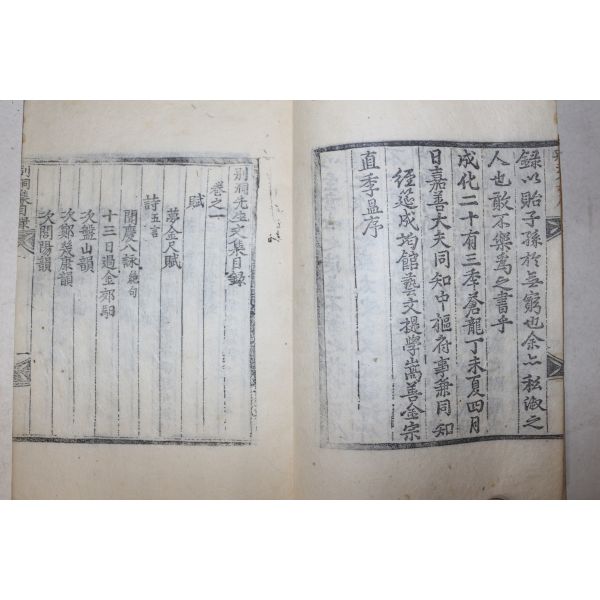 錄以貽子孫於無窮也余亦私淑之
人也敢不樂爲之書乎
成化二十有三季蒼龍丁未夏四月
日嘉善大夫同知中樞府事兼同知
經筵成均館藝文提學嵩善金宗
直季昷序
別洞先生文集目錄
卷之一
賦
夢金尺賦
詩五言
聞慶八詠絶句
十三日過金郊驛
次盤山韻
次鄭幾康韻
次閭陽韻
別洞集目錄
一